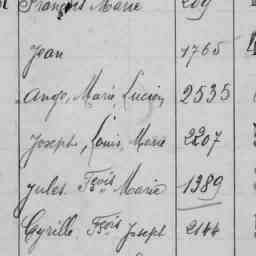 François Marie 209
Jean 1765
Ange, Marie, Lucien 2535
Joseph, Louis, Marie 2207
Jules Fçois Marie 1389
Cyrille Fçois Joseph 2144